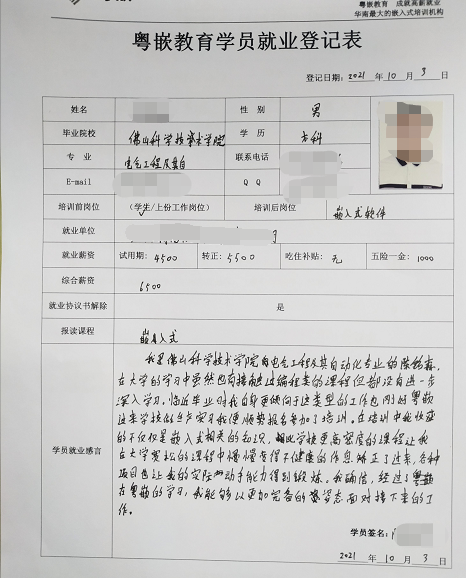 粤嵌教育 成就高薪就业
华南最大的嵌入式培训机构
粤嵌教育学员就业登记表
登记日期：2021 年 10 月 3 日
姓名 性 别 男
毕业院校 佛山科学技术学院 学 历 本科
专 业 电气工程及其自 联系电话
E-mail Q Q
培训前岗位 （学生/上份工作岗位） 培训后岗位 嵌入式软件
就业单位
就业薪资 试用期：4500 转正：5500 吃住补贴：无 五险一金：1000
综合薪资 6500
就业协议书解除 是
报读课程 嵌入式
学员就业感言
我是佛山科学技术学院的电气工程及其自动化专业的陈
在大学的学习中虽然也有接触过编程类的课程但都没有进一步
深入学习。临近毕业时我却更倾向于这类型的工作也刚好粤嵌
过来学校的生产实习我便顺势报名参加了培训。在培训中我收获
的不仅仅是嵌入式相关的知识，相比学校更高密度的课程让我
在大学宽松的课程中慢慢变得不健康的作息矫正了过来，各种
项目也让我的实际动手能力得到锻炼。我确信，经过了粤嵌
在粤嵌的学习，我能够以更加完备的姿态面对接下来的工
作。
学员签名：
2021 年 10 月 3 日